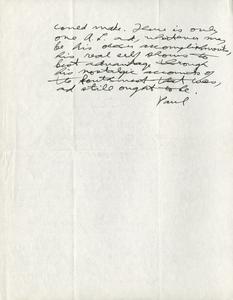 could make. There is only
one A.L. and whatever may
be his other accomplishments
his real self shows to
best advantage through
his nostalgic accounts of
that was,
and still ought to be.
Paul